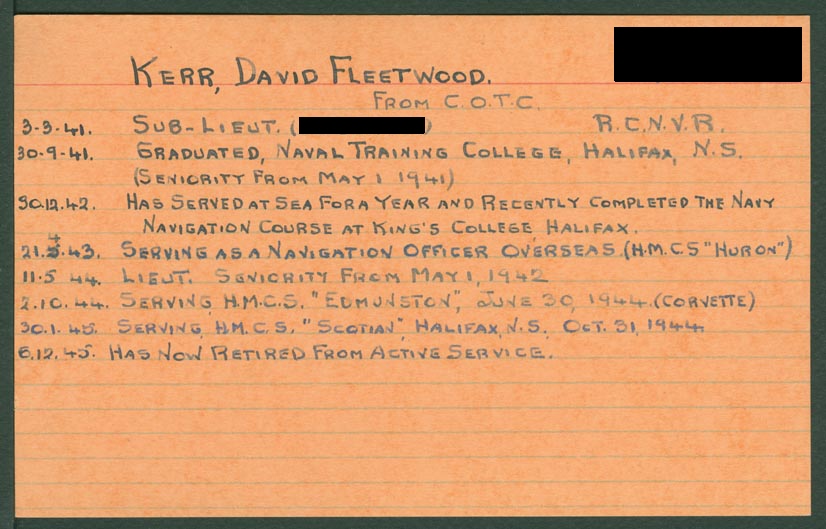 KERR, DAVID FLEETWOOD.
FROM C.O.T.C.
3-3-41. SUB-LIEUT. ( ) R.C.N.V.R.
30-9-41. GRADUATED, NAVAL TRAINING COLLEGE, HALIFAX, N.S.
(SENIORITY FROM MAY 1 1941)
30.12.42. HAS SERVED AT SEA FOR A YEAR AND RECENTLY COMPLETED THE NAVY
NAVIGATION COURSE AT KING'S COLLEGE HALIFAX.
21.4.43. SERVING AS A NAVIGATION OFFICER OVERSEAS. (H.M.C.S "HURON")
11.5 44. LIEUT. SENIORITY FROM MAY 1, 1942
2.10.44. SERVING, H.M.C.S. "EDMUNSTON", JUNE 30, 1944. (CORVETTE)
30.1.45. SERVING, H.M.C.S. "SCOTIAN", HALIFAX, N.S. OCT. 31, 1944
6.12.45. HAS NOW RETIRED FROM ACTIVE SERVICE.